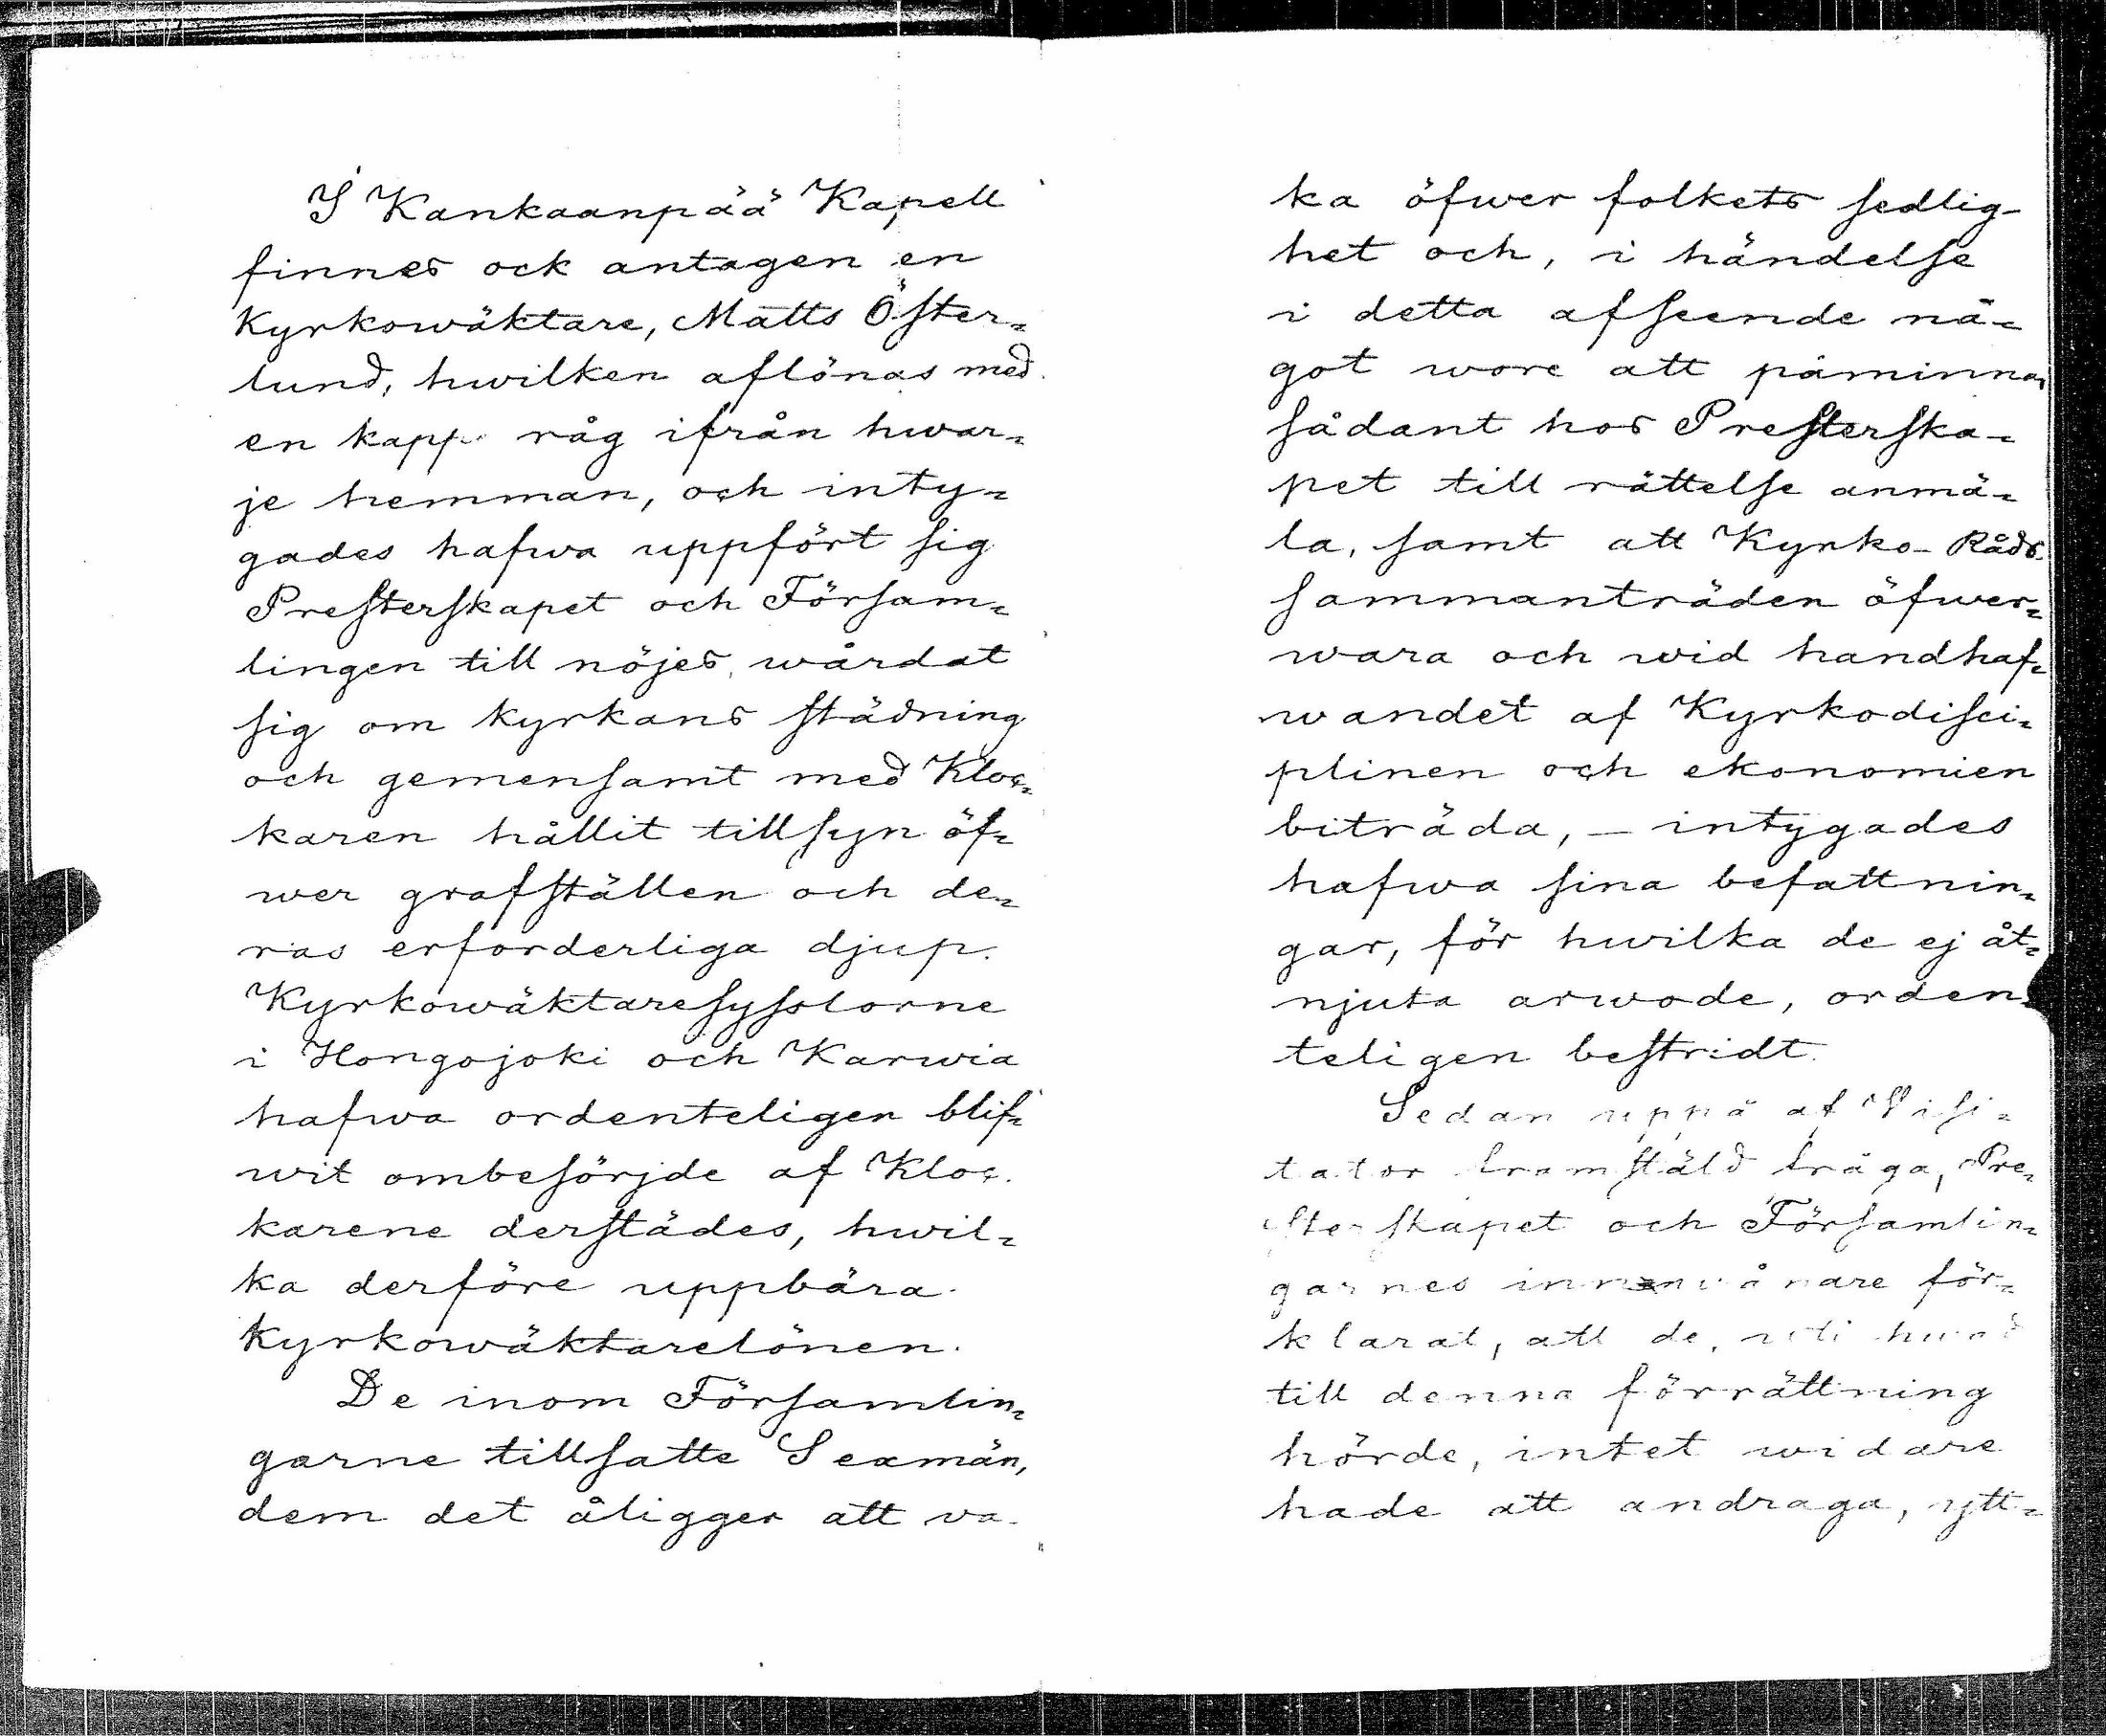 I Kankaanpää Kapell
finnes ock antagen en
Kyrkowäktare, Matts Öster=
lund, hwilken aflönas med
en kapp råg ifrån hwar=
je hemman, och inty=
gades hafwa uppfört sig
Presterskapet och Församm=
lingen till nöjes, wårdat
sig om kyrkans städning
och gemensamt med Kloc=
karen hållit tillsyn öf=
wer grafställen och de=
ras erforderliga djup.
Kyrkowäktaresysslorne
i Hongojoki och Karwia
hafwa ordenteligen blif=
wit ombesörjde af Kloc-
karene derstädes, hwil=
ka derföre uppbära
Kyrkowäktarelönen.
De inom Församlin=
garne tillsatte Sexmän,
dem det åligger att va-
ka öfwer folkets sedlig-
het och, i händelse
i detta afseende nå=
got wore att påminna,
sådant hos Presterska=
pet till rättelse anmä=
la, samt att Kyrko-Råds
sammanträden öfwer=
wara och wid handhaf=
wandet af Kyrkodisci=
plinen och ekonomien
biträda, – intygades
hafwa sina befattnin=
gar, för hwilka de ej åt=
njuta arwode, orden=
teligen bestridt.
Sedan uppå af Visi=
tator framstäld fråga, Pre=
sterskapet och Församlin=
garnes innewånare för=
klarat, att de, uti hwad
till denna förrättning
hörde, intet widare
hade att andraga, ytt=